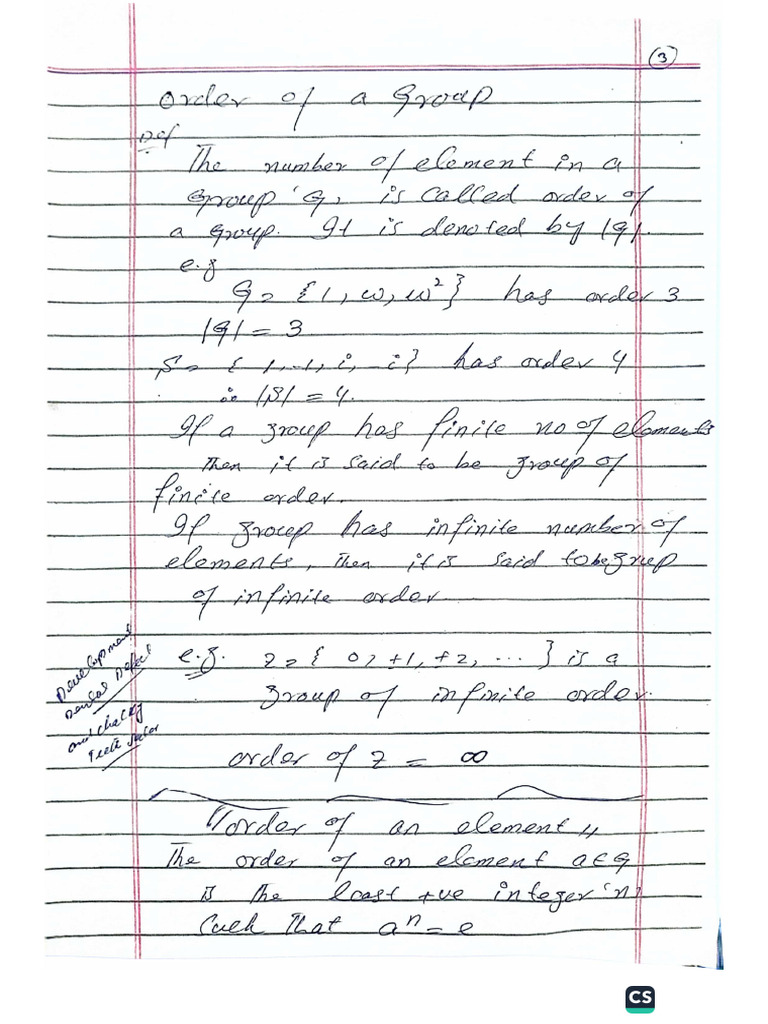 3
Order of a Group
Def
The number of element in a
Group 'G, is called order of
a Group. It is denoted by |G|.
e.g
G = {1, ω, ω²} has order 3
|G| = 3
S = {1, -1, i, -i} has order 4
∴ |S| = 4.
If a group has finite no of elements
Then it is said to be group of
finite order.
If group has infinite number of
elements, Then it is said to be group
of infinite order
e.g. Z = { 0, ±1, ±2, ... } is a
group of infinite order.
Development
Dental Defect
and chalky
Teeth
order of Z = ∞
"order of an element"
The order of an element a ∈ G
is the least +ve integer 'n'
Such That aⁿ = e
CS